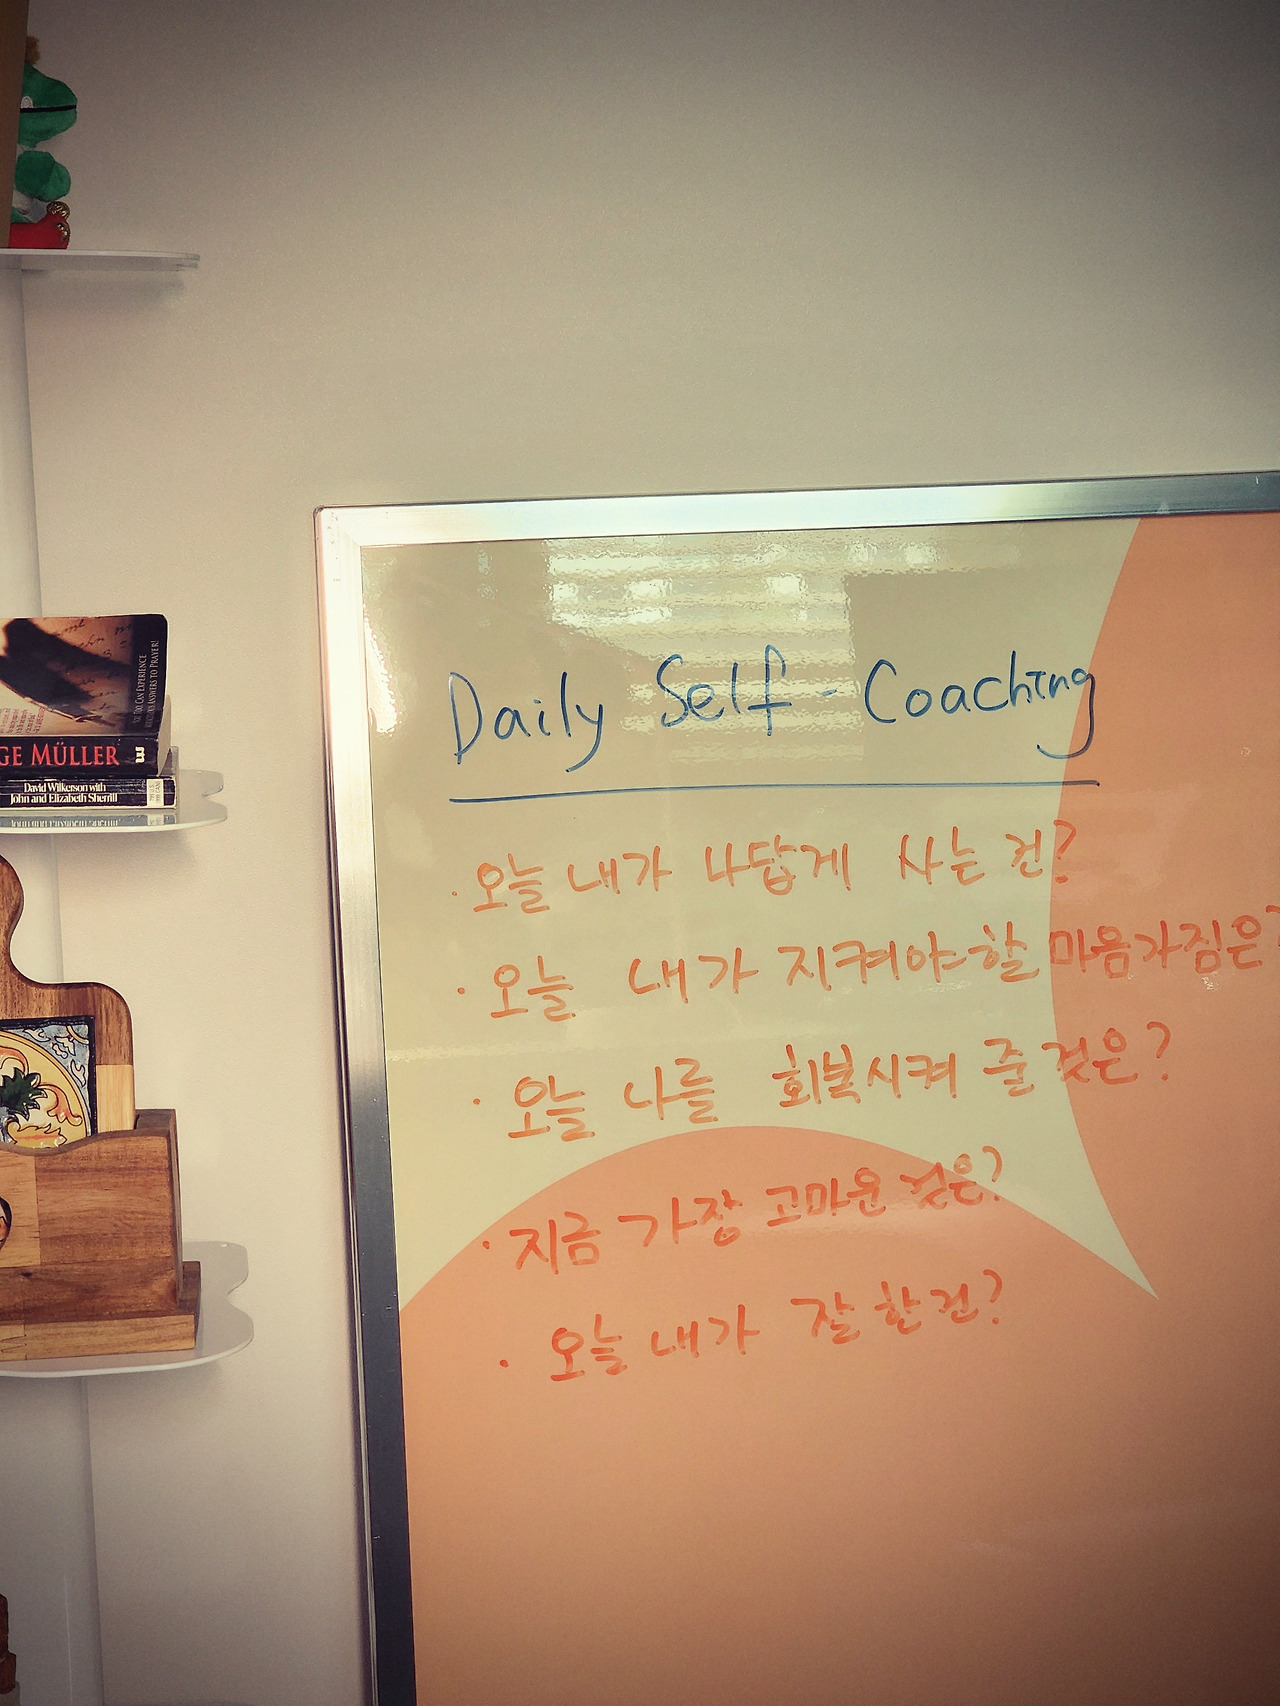 YOU TOO CAN EXPERIENCE
MIRACULOUS ANSWERS TO PRAYER!
GE MÜLLER
David Wilkerson with
John and Elizabeth Sherrill
Daily Self-Coaching
· 오늘 내가 나답게 사는 건?
· 오늘 내가 지켜야 할 마음가짐은?
· 오늘 나를 회복시켜 줄 것은?
· 지금 가장 고마운 것은?
· 오늘 내가 잘 한 건?